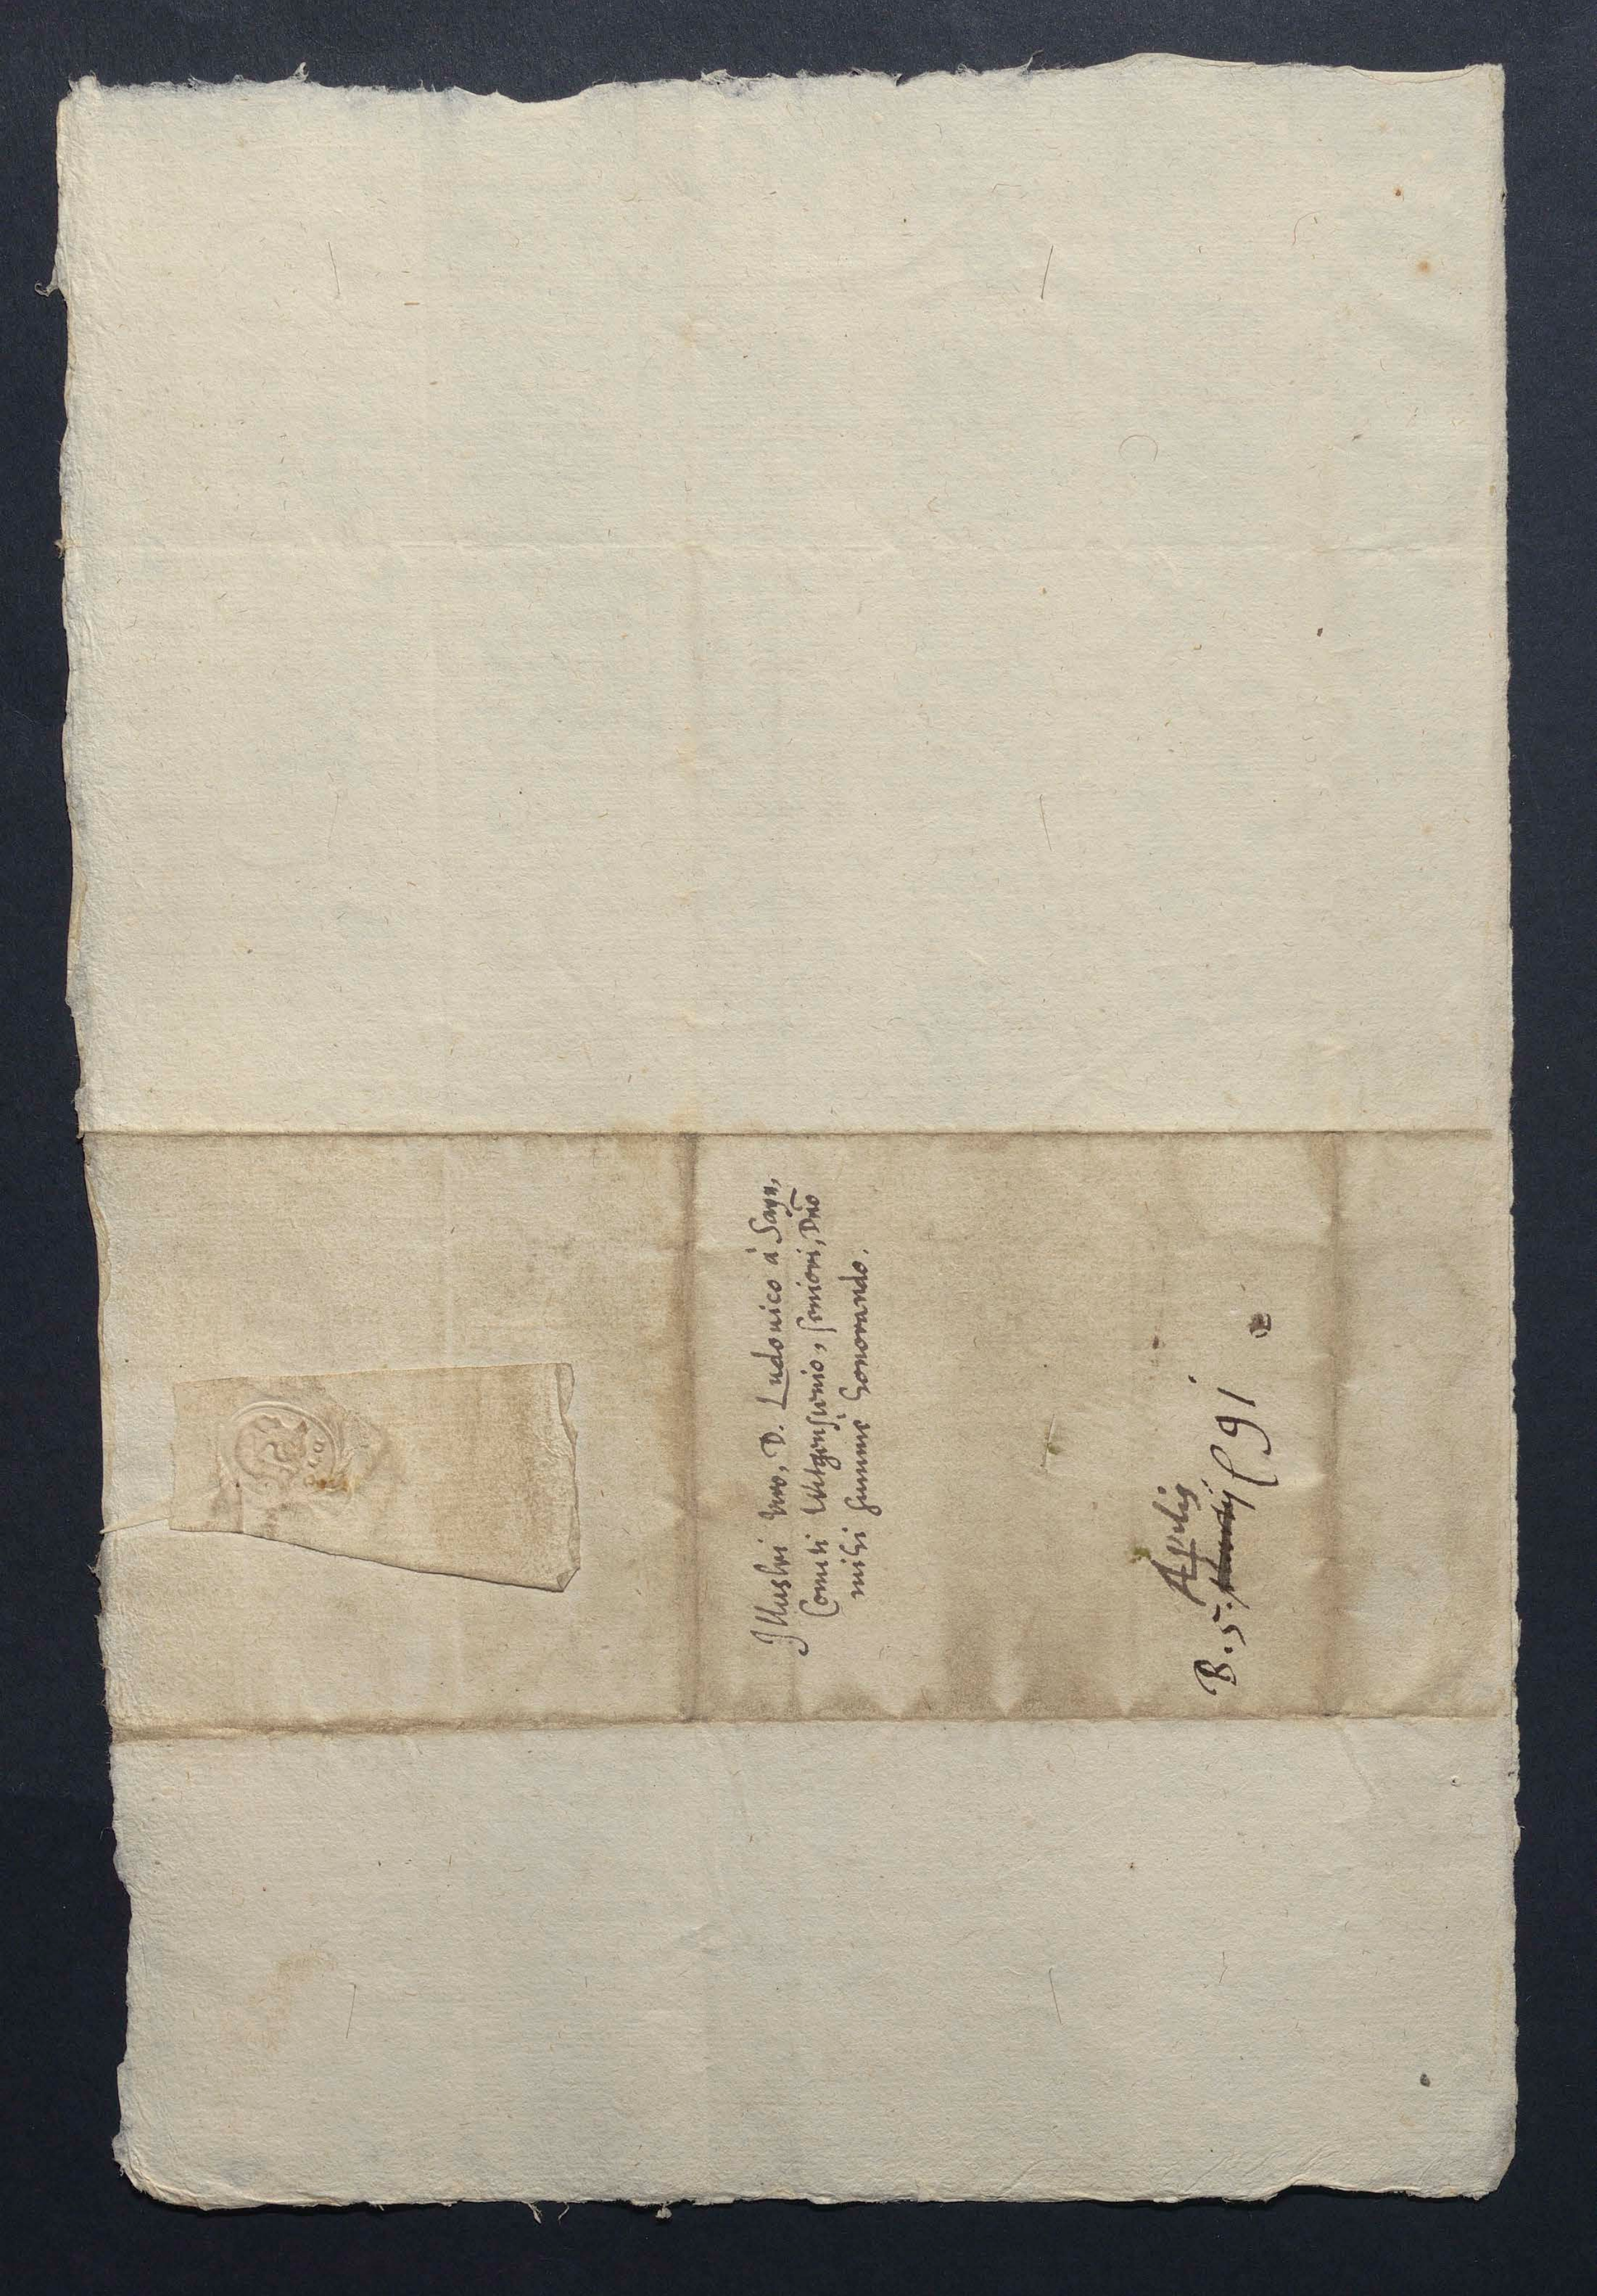 Illustri viro, D. Ludouico à Sayn,
Comiti Witgensteinio, seniori, Dno
mihi summè honorando.
Aprilis
B. 5. Martij 91